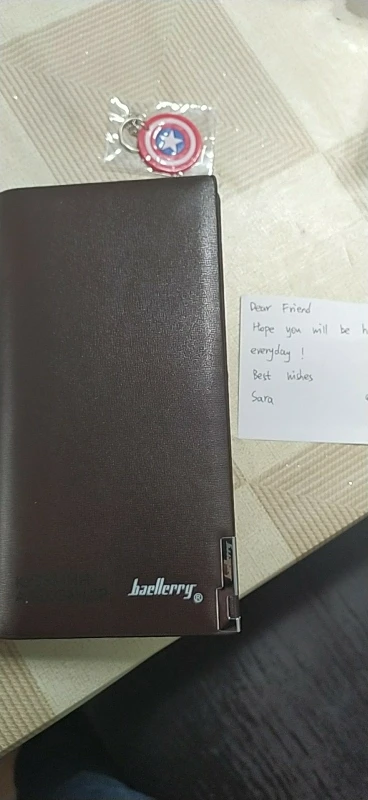 Dear Friend
Hope you will be
everyday !
Best wishes
Sara
baellerry
baellerry®